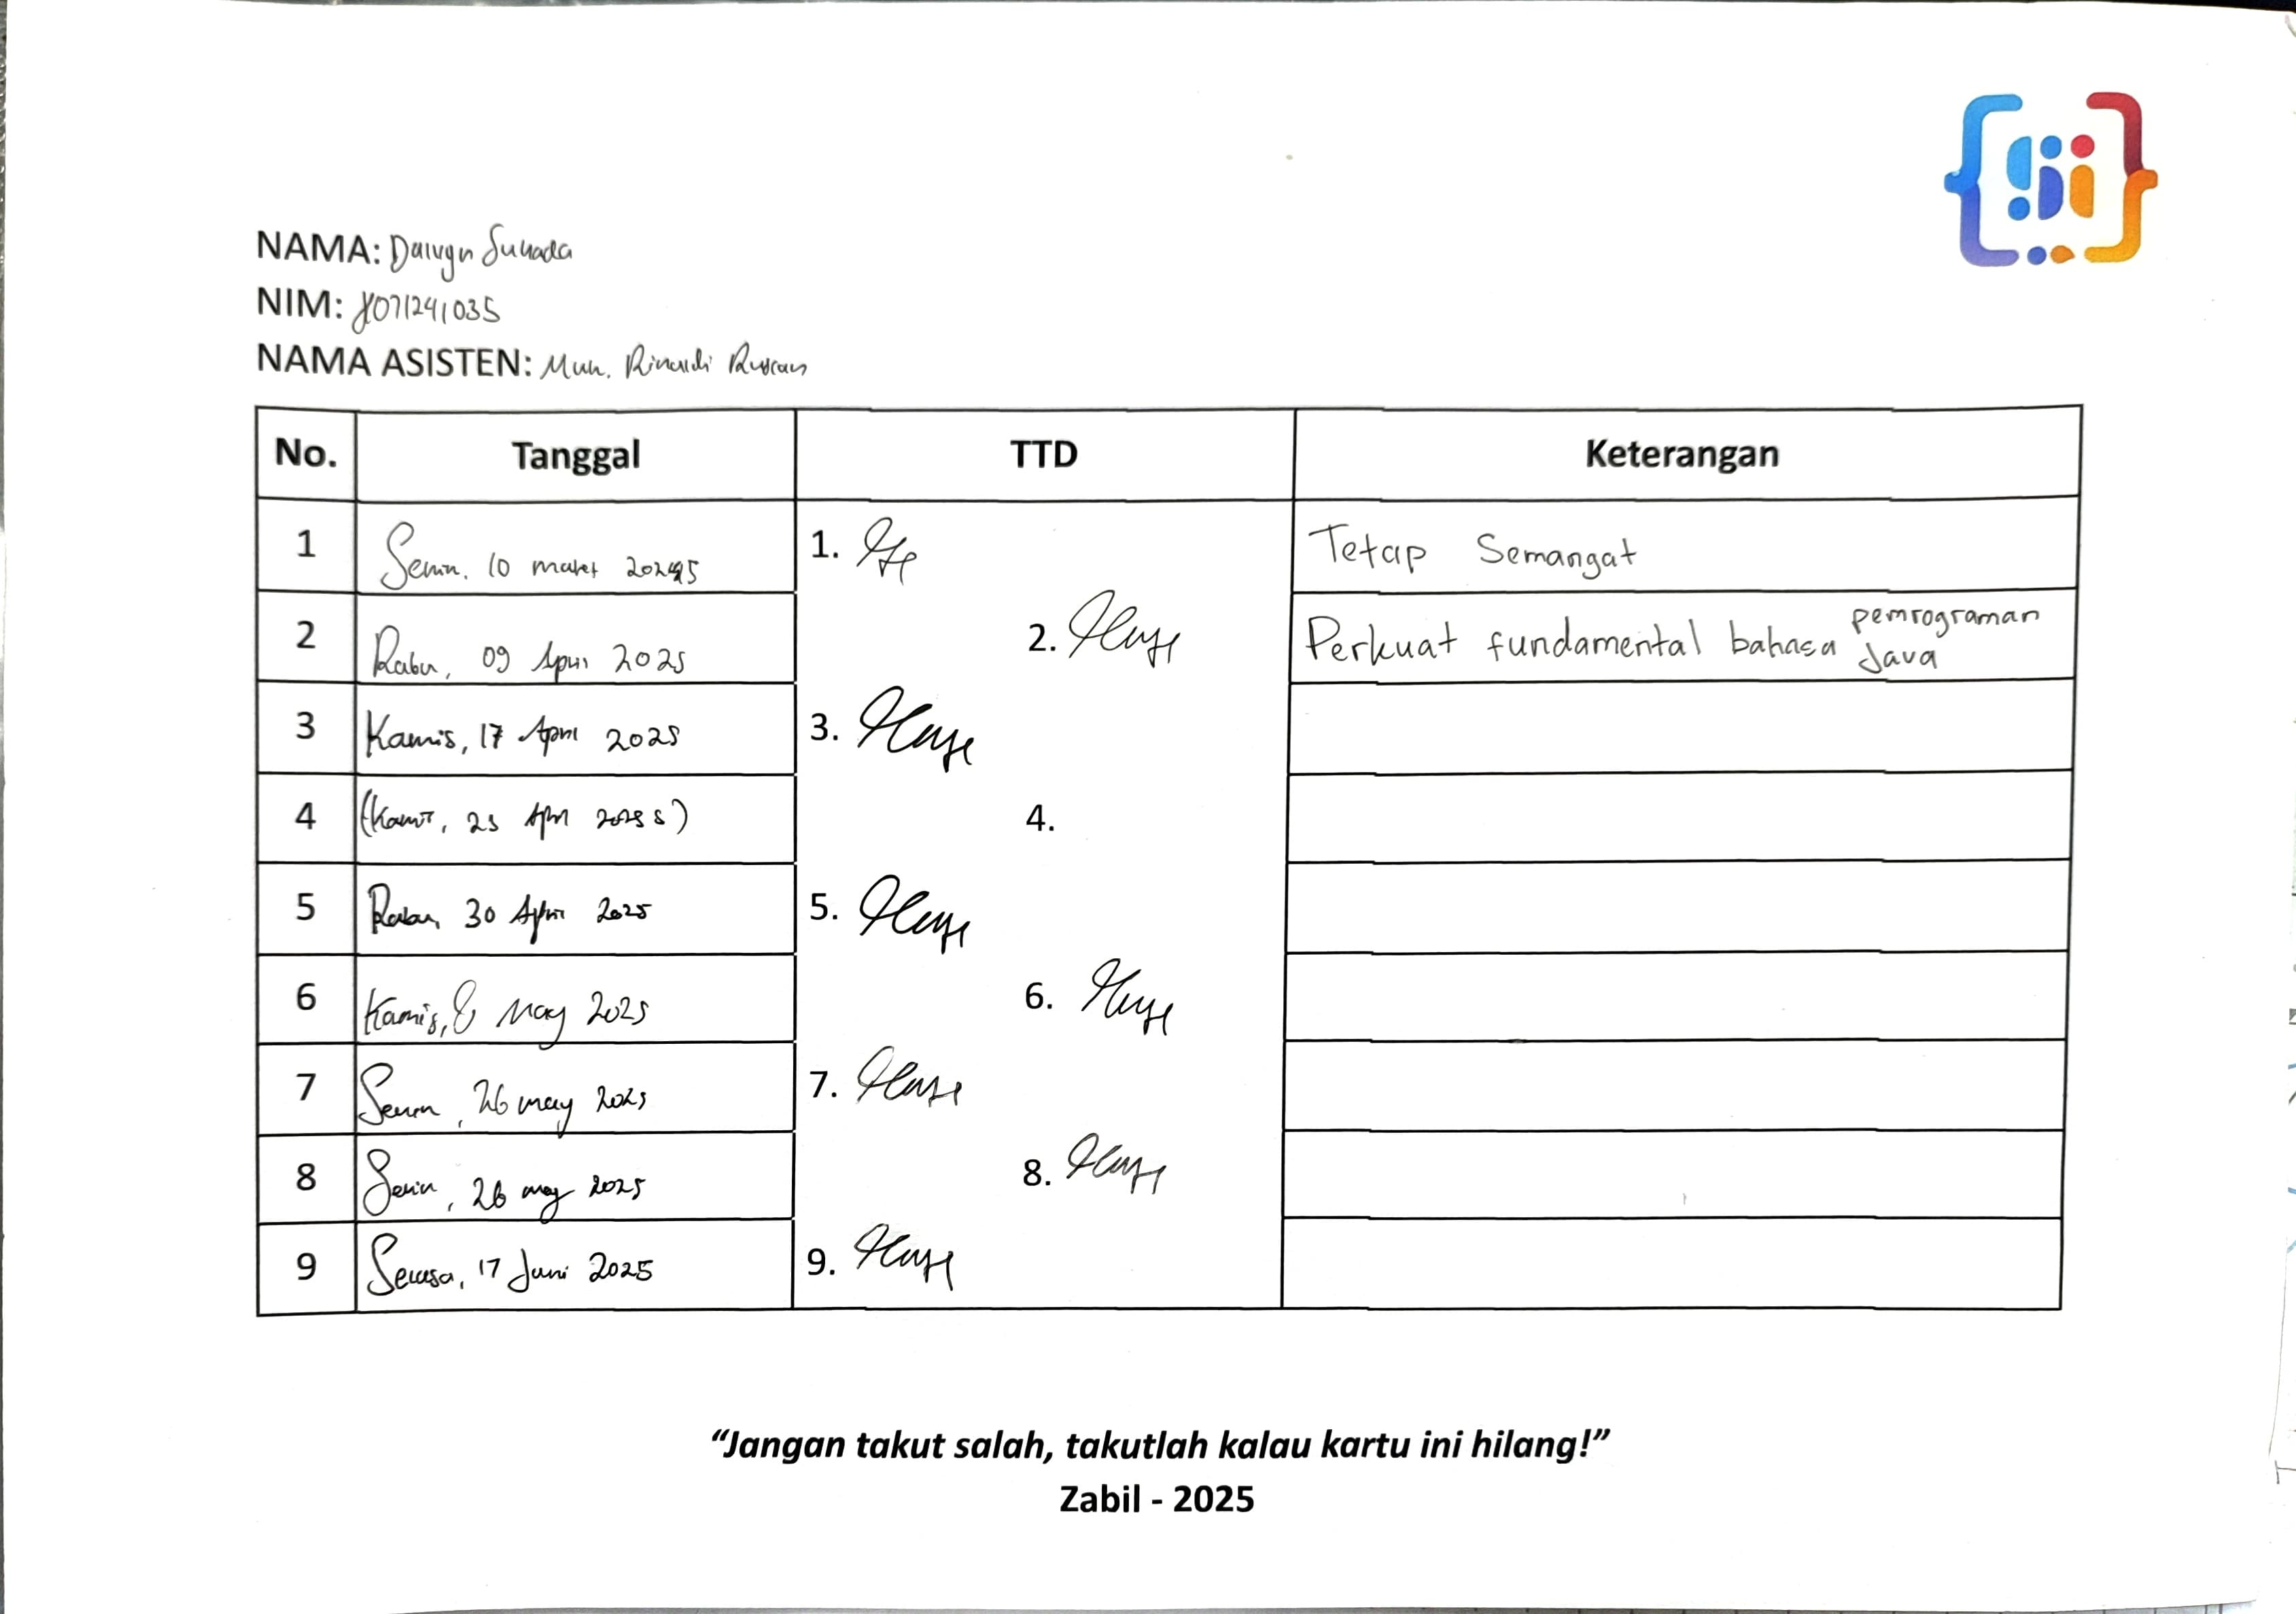 NAMA:
NIM: 071241035
NAMA ASISTEN: Muh. Rinaldi Ruslan
No. Tanggal TTD Keterangan
1 Senin, 10 maret 1. Tetap Semangat
2 Rabu, 09 April 2025 2. Perkuat fundamental bahasa pemrograman Java
3 Kamis, 17 April 2025 3.
4 4.
5 Rabu, 30 April 2025 5.
6 Kamis, 8 May 2025 6.
7 Senin, 26 may 2025 7.
8 Senin, 26 may 2025 8.
9 Selasa, 17 Juni 2025 9.
“Jangan takut salah, takutlah kalau kartu ini hilang!”
Zabil - 2025